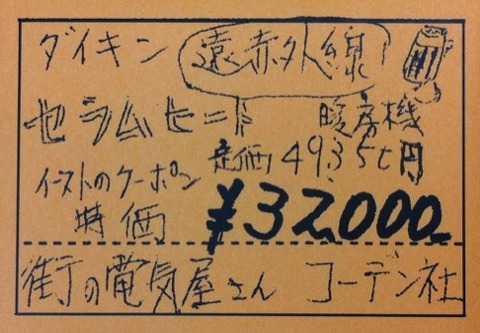 ダイキン 遠赤外線
セラムヒート 暖房機
定価 49350円
イーストのクーポン
特価 ¥32000
街の電気屋さん コーデン社